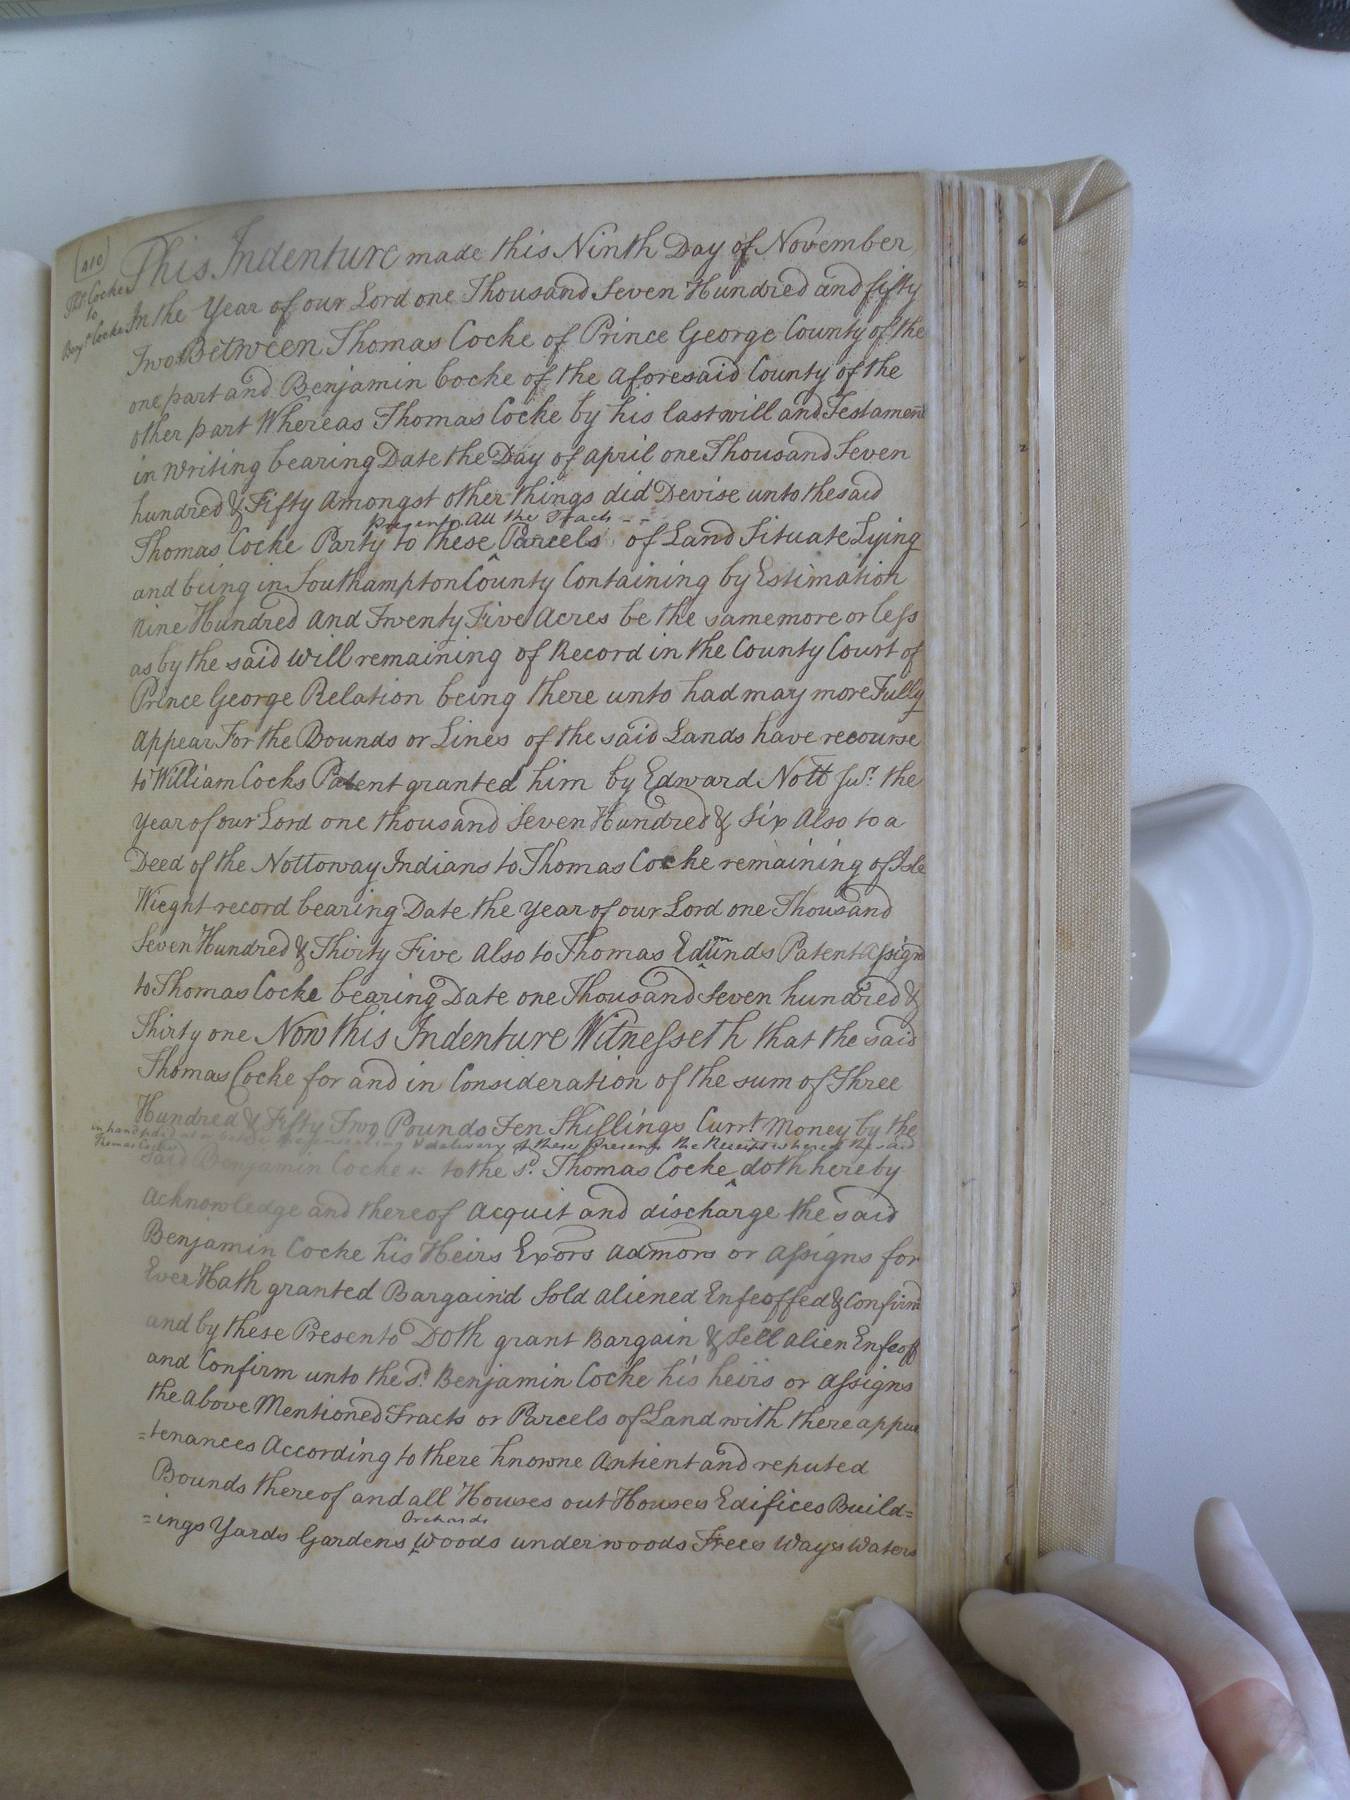 (210)
Thos Cocke
to
Benjn Cocke
This Indenture made this Ninth Day of November
In the Year of our Lord one Thousand Seven Hundred and fifty
Two Between Thomas Cocke of Prince George County of the
one part and Benjamin Cocke of the aforesaid County of the
other part Whereas Thomas Cocke by his last will and Testament
in writing bearing Date the Day of april one Thousand Seven
hundred & Fifty Amongst other things did Devise unto the said
Presents All the Tracts - -
Thomas Cocke Party to these Parcels of Land Situate Lying
and being in Southampton County Containing by Estimation
Nine Hundred and Twenty Five Acres be the same more or less
as by the said will remaining of Record in the County Court of
Prince George Relation being there unto had may more Fully
Appear For the Bounds or Lines of the said Lands have recourse
to William Cocks Patent granted him by Edward Nott the
Year of our Lord one thousand Seven Hundred & Six Also to a
Deed of the Nottoway Indians to Thomas Cocke remaining of Isle
Wieght record bearing Date the Year of our Lord one Thousand
Seven Hundred & Thirty Five Also to Thomas Edmunds Patent Assign
to Thomas Cocke bearing Date one Thousand Seven hundred &
Thirty one Now this Indenture Witnesseth that the said
Thomas Cocke for and in Consideration of the sum of Three
Hundred & Fifty Two Pounds Ten Shillings Currt Money by the
in hand paid at or before the ensealing & delivery of these Presents the Receipt whereof the said
Thomas Cocke
said Benjamin Cocke to the sd. Thomas Cocke doth hereby
Acknowledge and thereof Acquit and discharge the said
Benjamin Cocke his Heirs Exors admors or assigns for
Ever Hath granted Bargain'd Sold aliened Enfeoffed & Confirmd
and by these Presents Doth grant Bargain & Sell alien Enfeoff
and Confirm unto the sd. Benjamin Cocke his heirs or assigns
the Above Mentioned Tracts or Parcels of Land with there appur
=tenances According to there knowne Antient and reputed
Bounds thereof and all Houses out Houses Edifices Build=
Orchards
=ings Yards Gardens Woods underwoods Trees Ways Waters